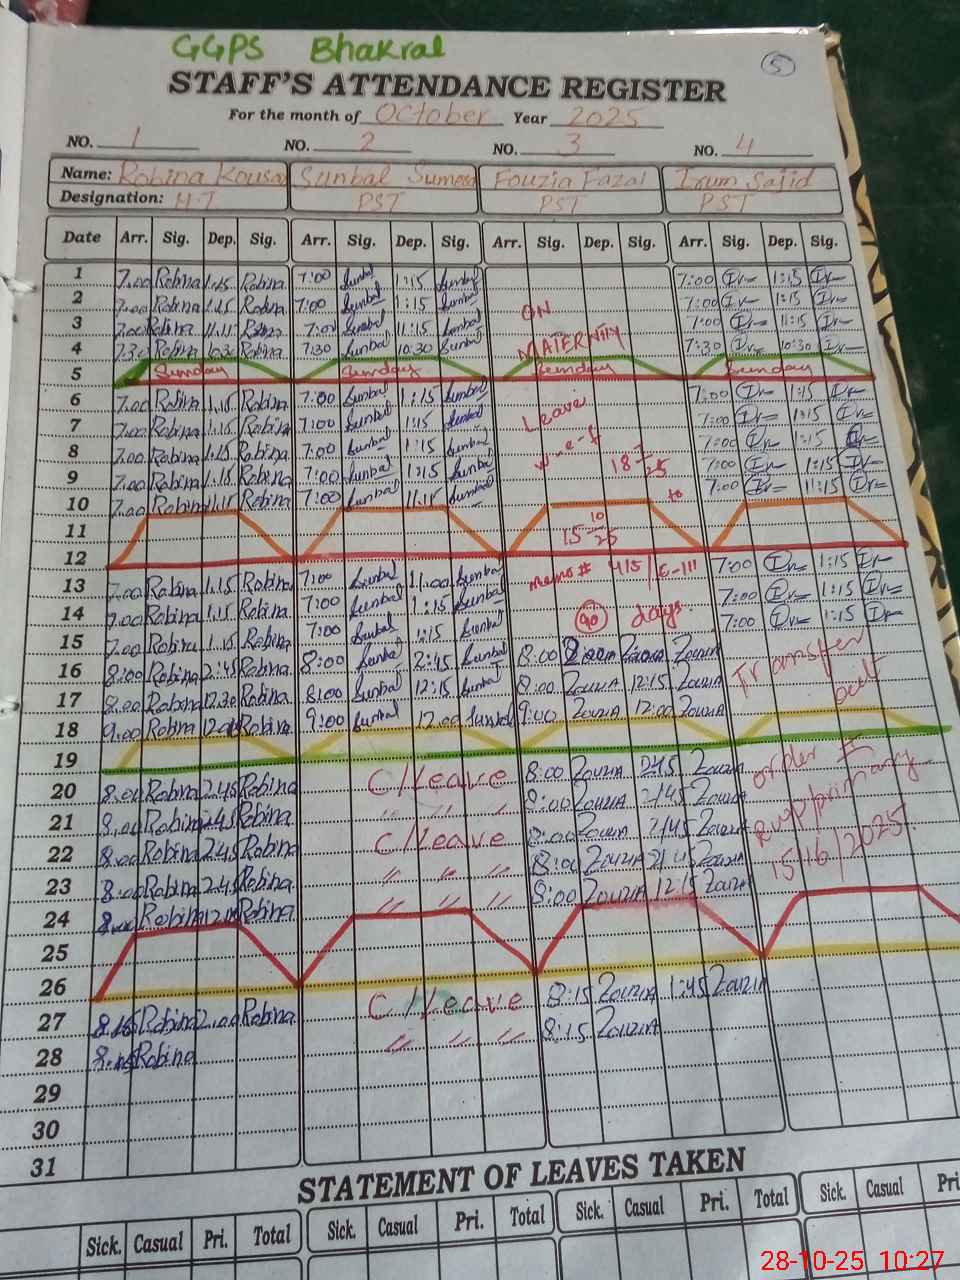 GGPS Bhakral
5
STAFF'S ATTENDANCE REGISTER
For the month of October Year 2025
NO. 1 NO. 2 NO. 3 NO. 4
Name: Robina Kousar Sunbal Sumera Fouzia Fazal Irum Sajid
Designation: H.T PST PST PST
Date Arr. Sig. Dep. Sig. Arr. Sig. Dep. Sig. Arr. Sig. Dep. Sig. Arr. Sig. Dep. Sig.
1 7.00 Robina 1.15 Robina 7:00 Sunbal 1:15 Sunbal 7:00 1:15
2 7.00 Robina 1.15 Robina 7:00 Sunbal 1:15 Sunbal ON 7:00 1:15
3 7.00 Robina 11.15 Robina 7:00 Sunbal 11:15 Sunbal 7:00 11:15
4 7.30 Robina 10.30 Robina 7:30 Sunbal 10:30 Sunbal MATERNITY 7:30 10:30
5 Sunday Sunday Sunday Sunday
6 7.00 Robina 1.15 Robina 7:00 Sunbal 1:15 Sunbal Leave 7:00 1:15
7 7.00 Robina 1.15 Robina 7:00 Sunbal 1:15 Sunbal 7:00 1:15
8 7.00 Robina 1.15 Robina 7:00 Sunbal 1:15 Sunbal w-e-f 18 25 7:00 1:15
9 7.00 Robina 1.15 Robina 7:00 Sunbal 1:15 Sunbal to 7:00 1:15
10 7.00 Robina 11.15 Robina 7:00 Sunbal 11:15 Sunbal 7:00 11:15
11 15 10 25
12
13 7.00 Robina 1.15 Robina 7:00 Sunbal 11:00 Sunbal memo # 415/E-III 7:00 1:15
14 7.00 Robina 1.15 Robina 7:00 Sunbal 1:15 Sunbal 90 days. 7:00 1:15
15 7.00 Robina 1.15 Robina 7:00 Sunbal 1:15 Sunbal 7:00 1:15
16 8:00 Robina 2:45 Robina 8:00 Sunbal 2:45 Sunbal 8:00 Zouzia Transfer
17 8.00 Robina 12.30 Robina 8:00 Sunbal 12:15 Sunbal 8:00 Zouzia 12:15 Zouzia out
18 9.00 Robina 12.00 Robina 9:00 Sunbal 12.00 Sunbal 9:00 Zouzia 12:00 Zouzia
19
20 8.00 Robina 2.45 Robina C/Leave 8:00 Zouzia 2:45 Zouzia order #
21 8.00 Robina 2.45 Robina " " " 8:00 Zouzia 2:45 Zouzia
22 8.00 Robina 2.45 Robina C/Leave 8:00 Zouzia 2:45 Zouzia
23 8.00 Robina 2.45 Robina " " " 8:00 Zouzia 2:45 Zouzia 15/6/2025.
24 8.00 Robina Robina " " " 8:00 Zouzia 12:15 Zouzia
25
26
27 8.15 Robina 2.00 Robina C/Leave 8:15 Zouzia 1:45 Zouzia
28 8.15 Robina " " " 8:15 Zouzia
29
30
31
STATEMENT OF LEAVES TAKEN
Sick. Casual Pri. Total Sick. Casual Pri. Total Sick. Casual Pri. Total Sick. Casual Pri
28-10-25 10:27